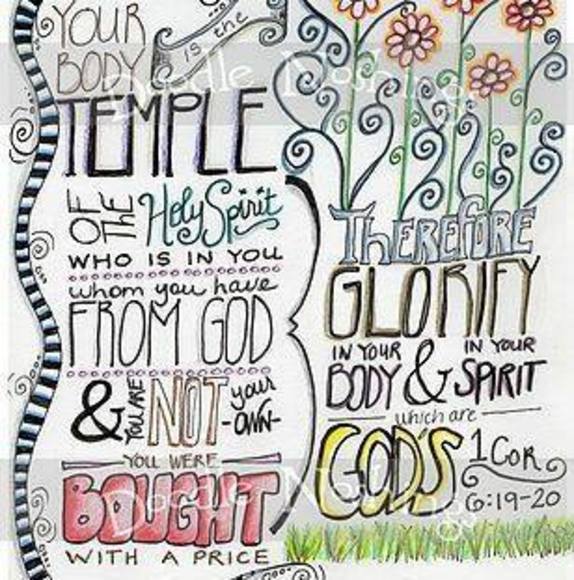 YOUR
BODY is the
TEMPLE
OF THE Holy Spirit
WHO IS IN YOU
whom you have
FROM GOD
& YOU ARE NOT your
-OWN-
YOU WERE
BOUGHT
WITH A PRICE
THEREFORE
GLORIFY
IN YOUR BODY & IN YOUR SPIRIT
which are
GOD'S 1 COR
6:19-20
Doodle Nothings
Doodle Nothings